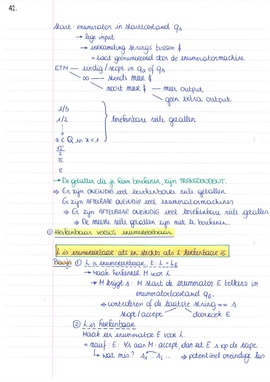 42.
start: enumerator in starttoestand q₀
→ lege input
→ verzameling strings tussen #
= taal geënumereerd door de enumeratormachine
ETM — eindig / stopt in qₐ of qᵣ
∞ — steeds meer #
nooit meer # — meer output
geen extra output
1/3
1/2
x ∈ Q in x < 1
berekenbare reële getallen
√2
π
e
→ De getallen die je kan berekenen zijn TRANSCENDENT.
⇒ Er zijn ONEINDIG veel berekenbare reële getallen
Er zijn AFTELBAAR ONEINDIG veel enumeratormachines
⇒ Er zijn AFTELBAAR ONEINDIG veel berekenbare reële getallen
⇒ De meeste reële getallen zijn niet te berekenen.
① Herkenbaar versus enumereerbaar
L is enumereerbaar als en slechts als L herkenbaar is
Bewijs ① L is enumereerbaar E: L = L_E
→ Maak herkenner M van L
→ M krijgt s: M start de enumerator E telkens in
enumeratortoestand q_E.
controleren of de laatste string == s
stopt / accept
doorzoek E
② L is herkenbaar
Maak een enumerator E voor L
= naief: E: Als M accept, dan zet E s op de tape
wat mis? s₀ s₁ ... → potentieel oneindige lus